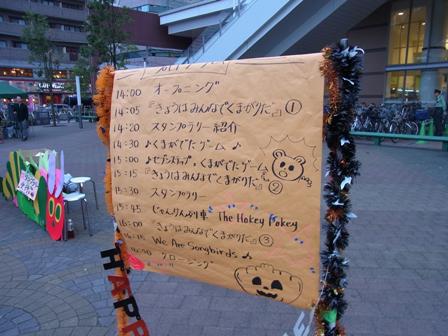 14:00 オープニング
14:05 『きょうはみんなでくまがりだ』①
14:20 スタンプラリー紹介
14:30 ♪くまがでたゲーム♪
15:00 ♪セブンステップ・くまがでたゲーム
15:15 『きょうはみんなでくまがりだ』②
15:30 スタンプラリー
15:45 じゃんけんぶり車 The Hokey Pokey
16:00 『きょうはみんなでくまがりだ』③
16:15 We Are Songbirds ♪
16:30 クロージング
HAPP